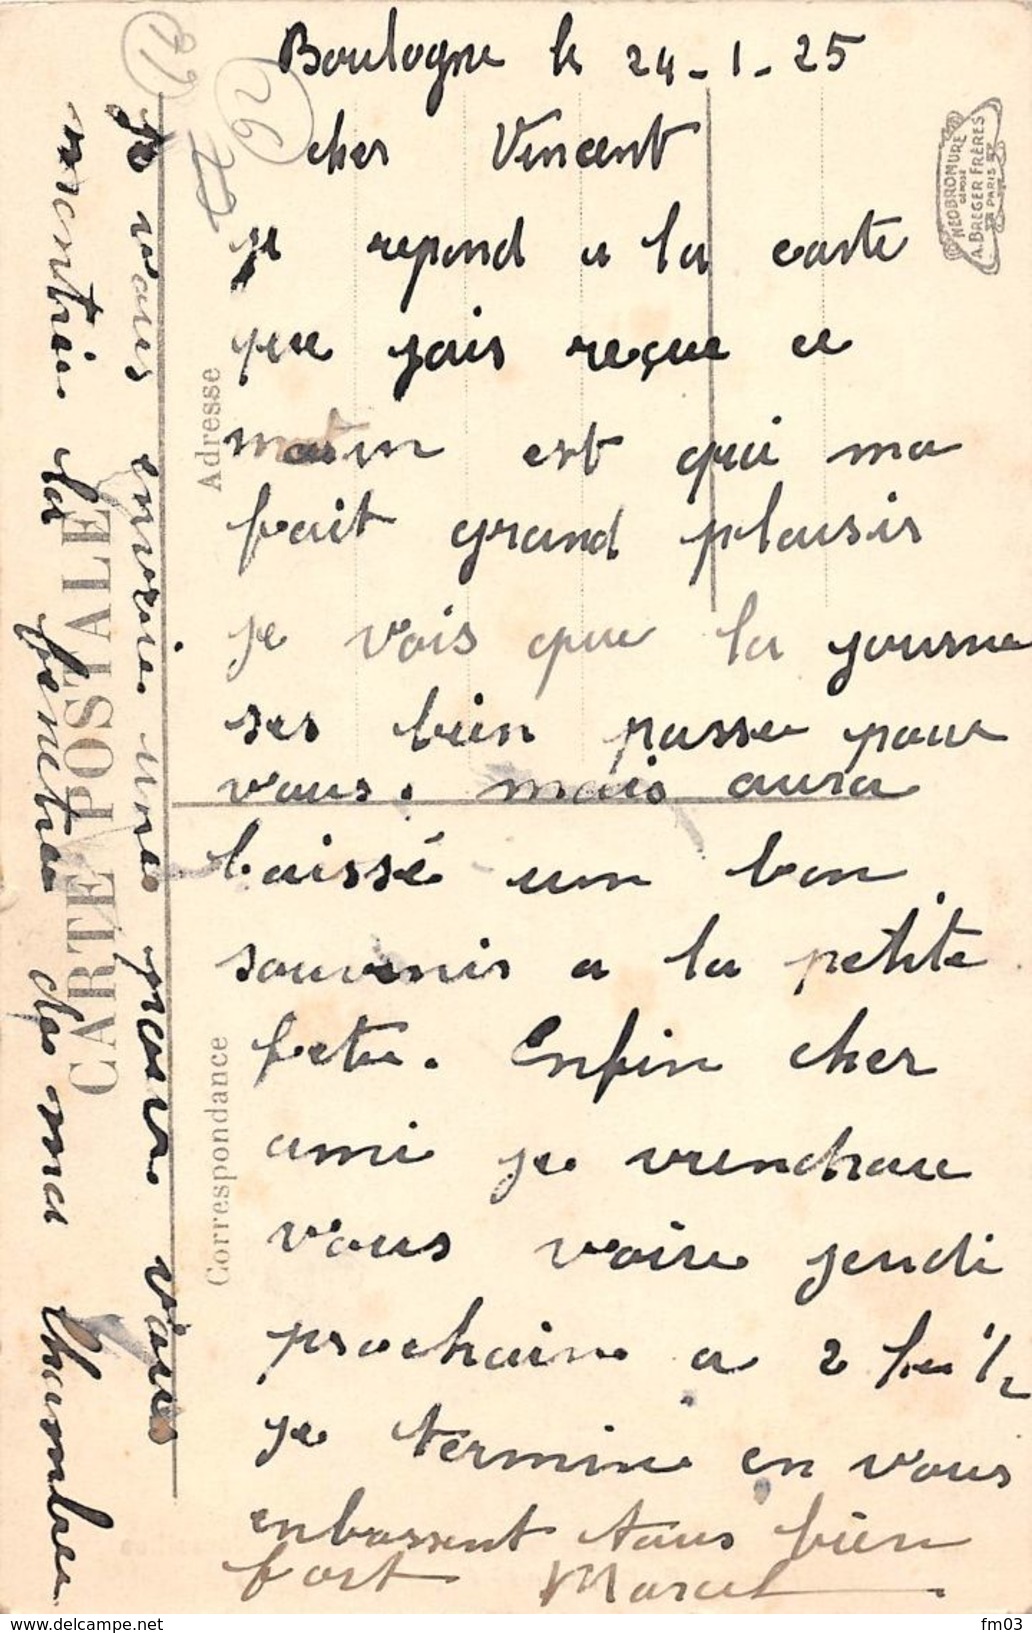 Boulogne le 24-1-25
cher Vincent
je repond a la carte
que jais reçue ce
matin est qui ma
fait grand plaisir
je vois que la journe
ses bien passer pour
vous. mais aura
laissé un bon
souvenir a la petite
fete. Enfin cher
ami je viendrai
vous voire jeudi
prochaine a 2 heu 1/2
je termine en vous
enbassent tous bien
fort Marcel
je vous envoie une pour vous
montrer la fenetre de ma chambre
CARTE POSTALE
Correspondance
Adresse
NEOBROMURE
A. BREGER FRÈRES
PARIS
26
fm03